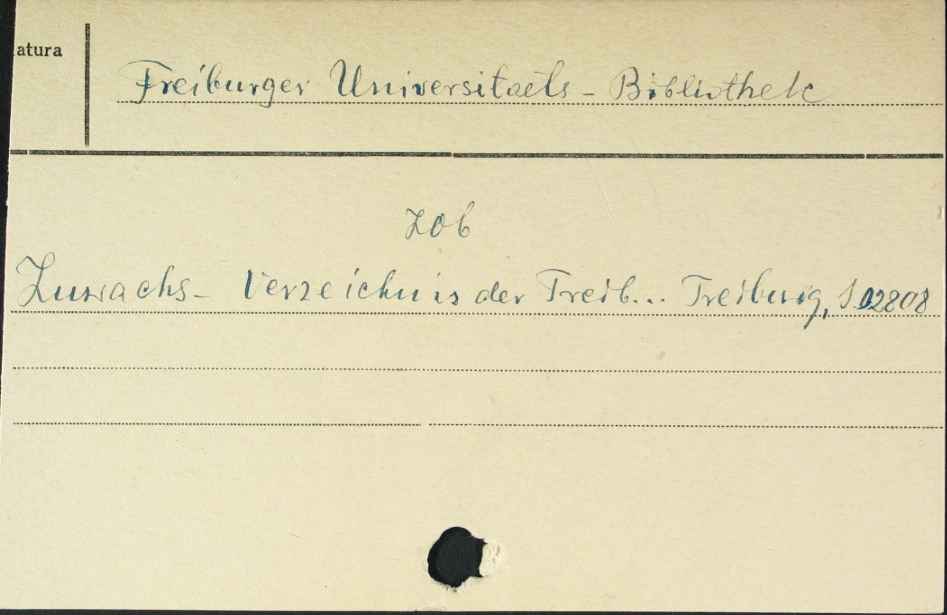 atura
Freiburger Universitaets - Bibliothek
Zuwachs - Verzeichnis der Freib... Freiburg,